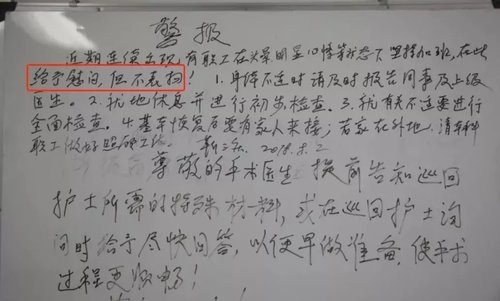 警报
近期连续出现有职工在头晕明显心悸等状态下坚持加班,在此
给予慰问,但不表扬!1.身体不适时请及时报告同事及上级
医生。2.就地休息并进行初步检查。3.犹有不适要进行
全面检查。4.基本恢复后要有家人来接;若家在外地,请本科
职工做好照顾工作。 2018.
尊敬的手术医生提前告知巡回
护士所需的特殊材料,或在巡回护士询
问时给予尽快回答,以便早做准备,使手术
过程更顺畅!